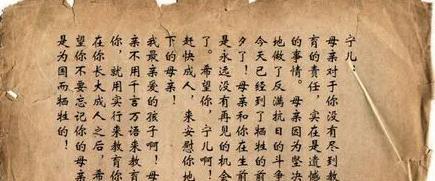 宁儿：
母亲对于你没有尽到教
育的责任，实在是遗憾
的事情。母亲因为坚决
地做了反满抗日的斗争
今天已经到了牺牲的前
夕了！母亲和你在生前
是永远没有再见的机会
了。希望你，宁儿啊！
赶快成人，来安慰你地
下的母亲！
我最亲爱的孩子啊！母
亲不用千言万语来教育
你，就用实行来教育你
在你长大成人之后，希
望你不要忘记你的母亲
是为国而牺牲的！